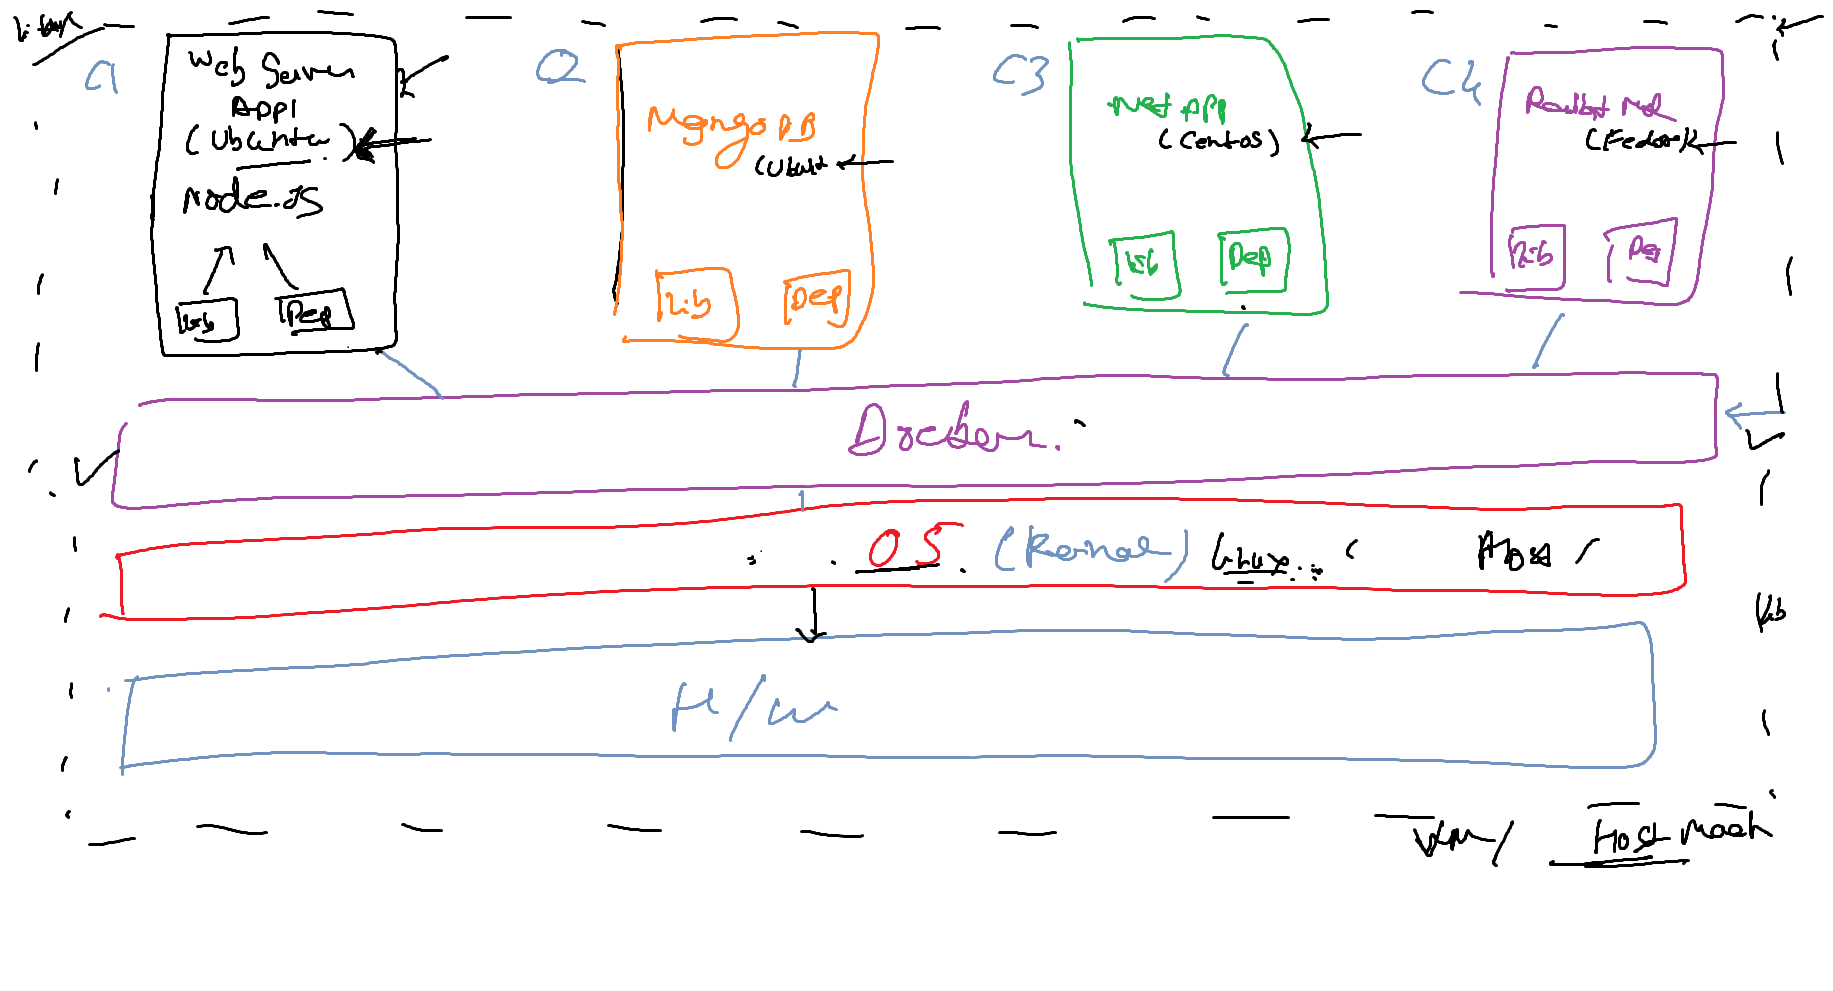 C1
Web Server
App1
(Ubuntu)
Node.JS
Lib
Dep
C2
MongoDB
(Ubunt
Lib
Dep
C3
Net App
(Centos)
Lib
Dep
C4
Rabbit MQ
(Fedora)
Lib
Dep
Docker.
OS (Kernal) Linux Host
H/w
VM/ Host Mach